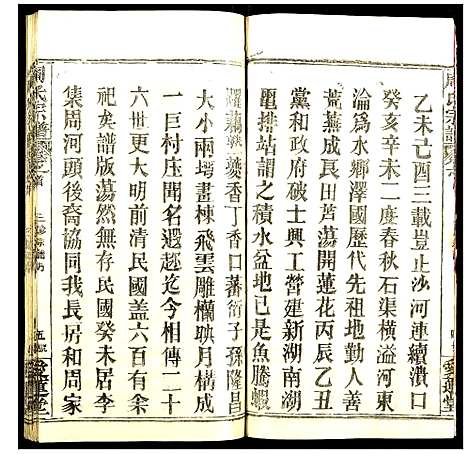 乙未己酉三載豈止沙河連續潰口
癸亥辛未二度春秋石渠橫溢河東
淪爲水鄉澤國歷代先祖地勤人善
荒蕪成良田芦蕩開蓮花丙辰乙丑
黨和政府破土興工營建新南湖
電排站謂之積水盆地已是魚騰蝦
躍藕香丁香口蕃衍子孫隆昌
大小兩塆畫棟飛雲雕欄映月構成
一巨村庄聞名遐邇迄今相傳二十
六世更大明前清民國蓋六百有余
祀矣譜版蕩然存民國癸未居李
集周河頭後裔協同我長房和周家
周氏宗譜
愛蓮堂
周氏宗譜
愛蓮堂